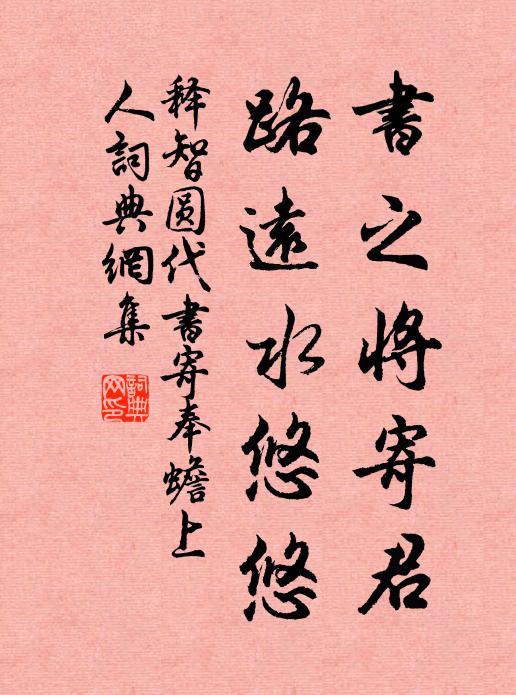 書之將寄君
路遠水悠悠
释智圓代書寄奉蟾上
人詞典網集
詞典
网印